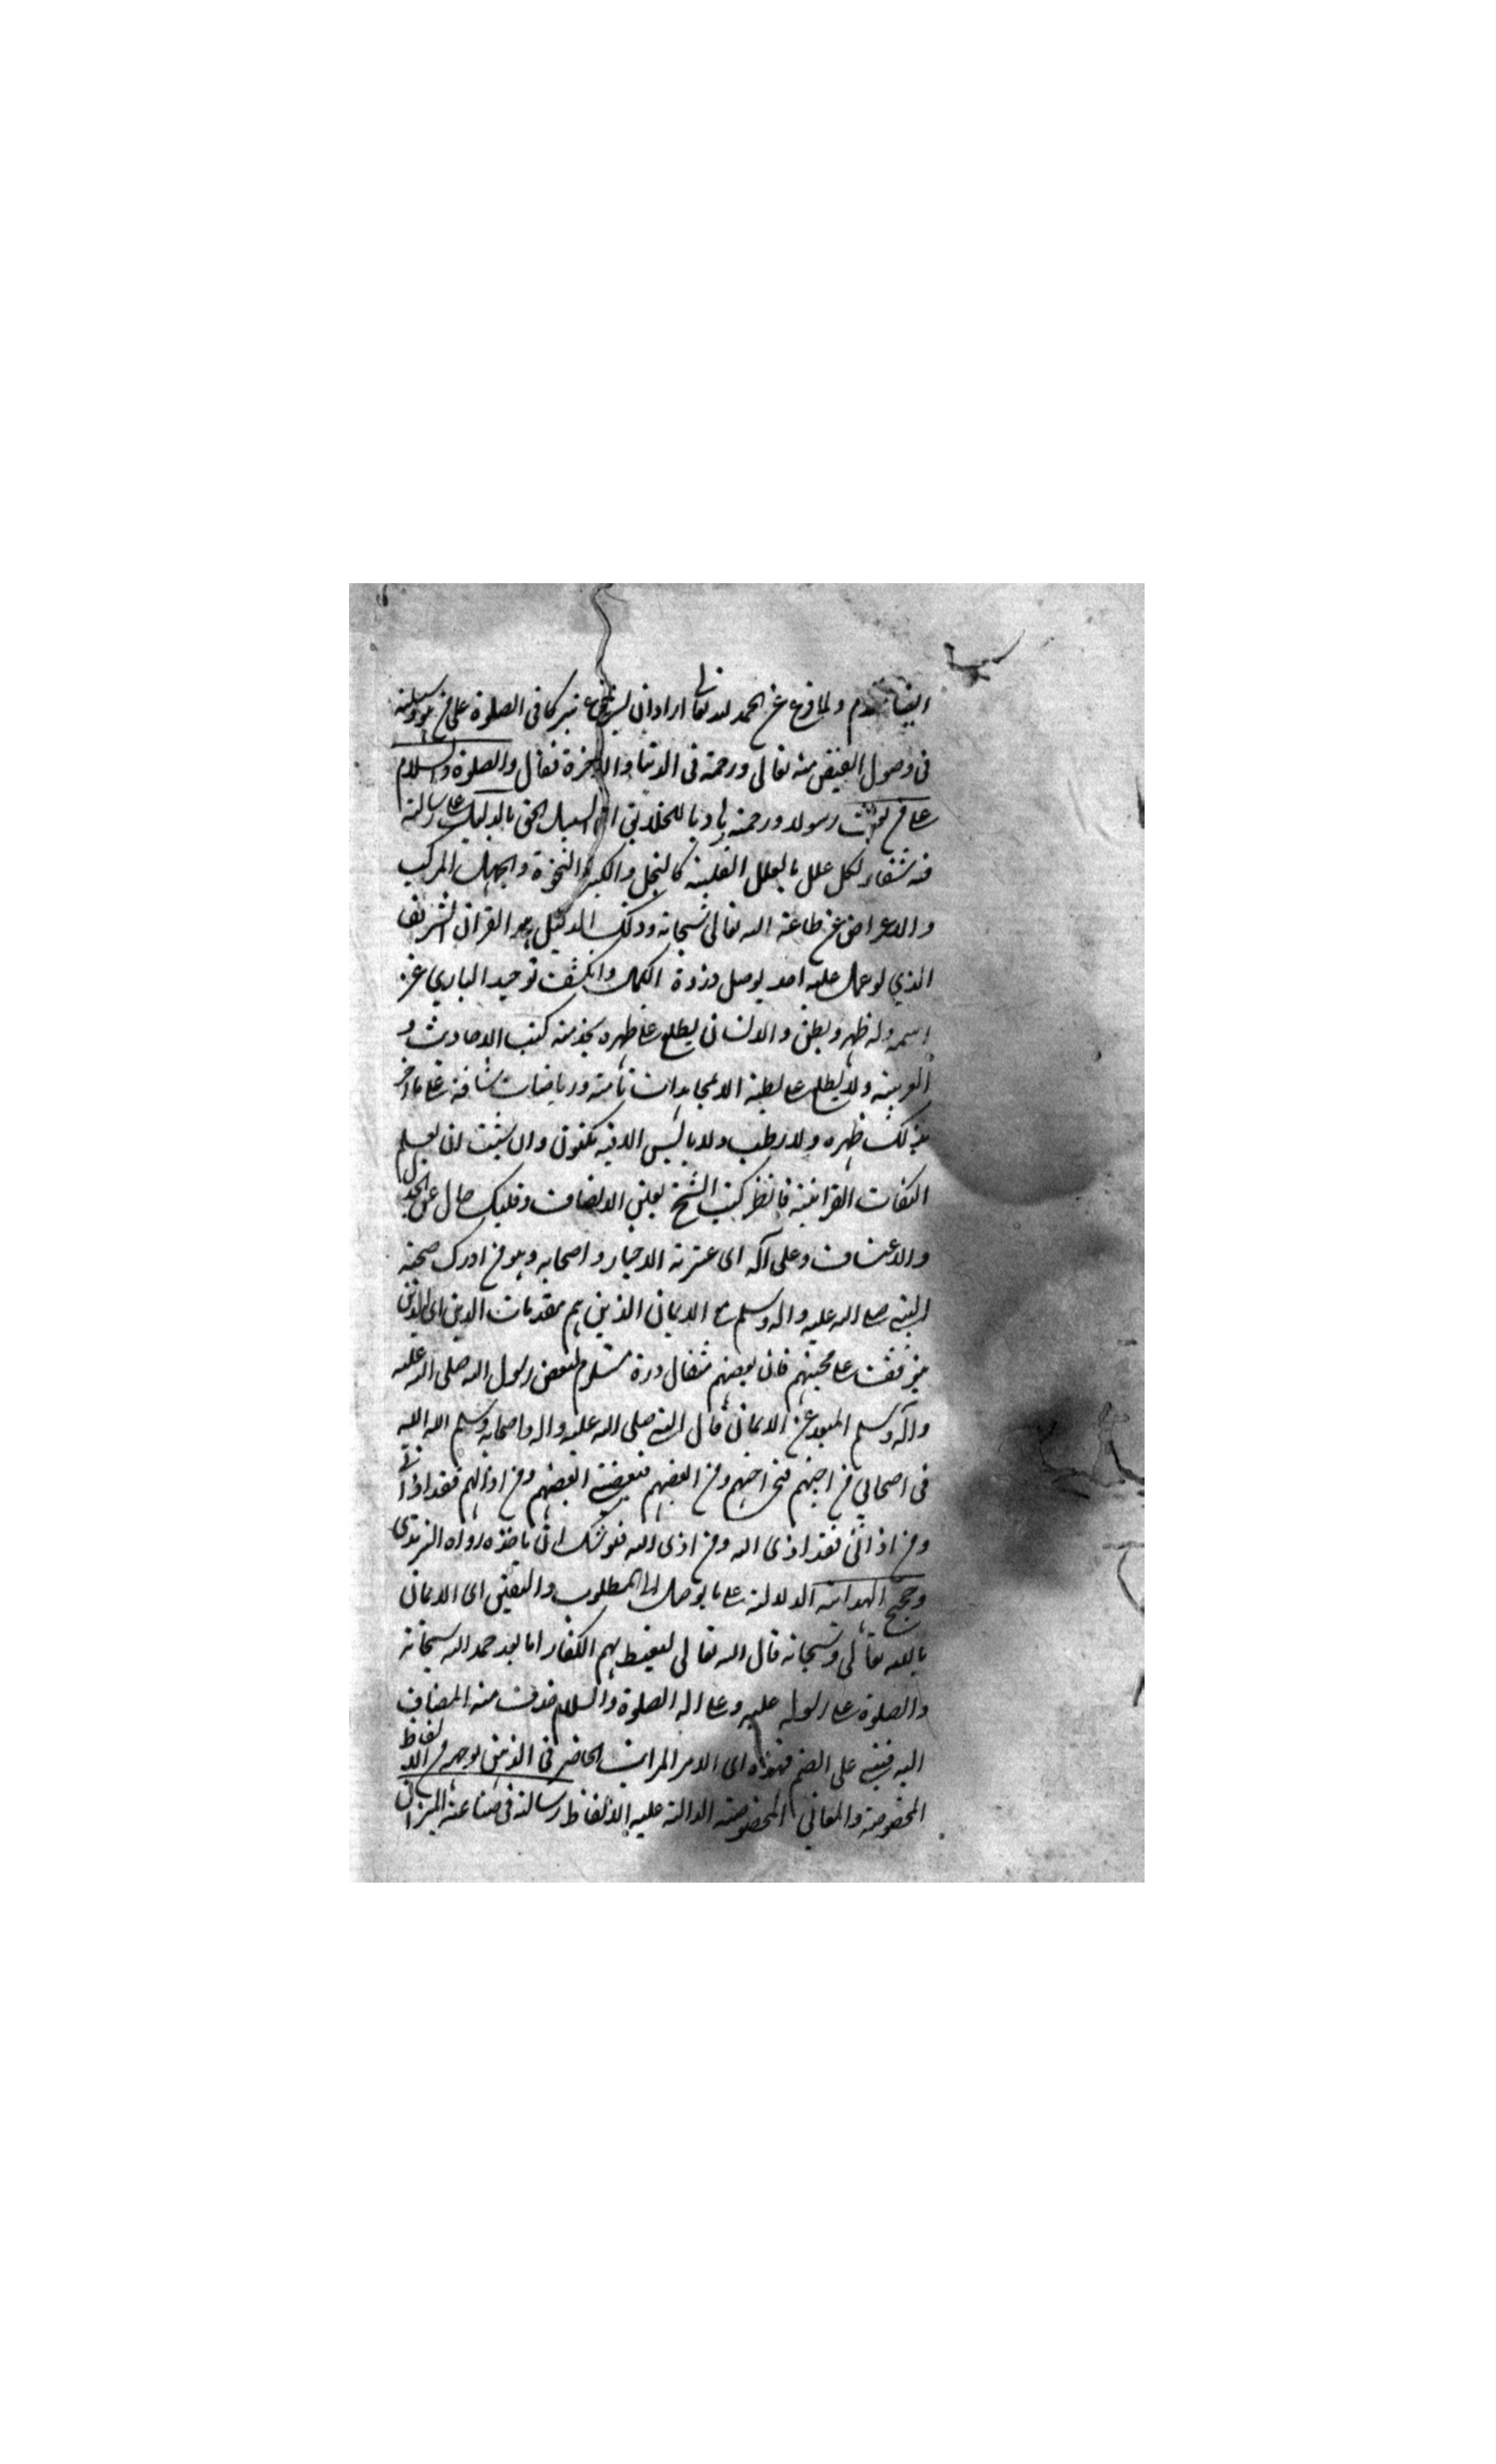 ايضا ولما فرغ عن الحمد لله تعالى اراد ان يشرع في الصلوة على من هو وسيلة
فى وصول الفيض منه تعالى ورحمة فى الدنيا والاخرة فقال والصلوة والسلام
على من بعث رسولا ورحمة هاديا للخلايق الى السبيل الحق بالدليل على رسالته
فيه شفاء لكل علل بالعلل القلبية كالبخل والكبر والنخوة والجهل المركب
والاعراض عن طاعة الله تعالى سبحانه وذلك الدليل هو القران الشريف
الذي لو عمل عليه احد يوصل دروة الكمال وانكشف توحيد الباري عز
اسمه وله ظهر وبطن والانسان يطلع على ظهره كتب الاحاديث و
العربية ولا يطلع على بطنه الا بمجاهدات تامة ورياضات شاقة على ما اخر
ظهره ولا رطب ولا يابس الا فيه مكنون وان شئت ان تعلم
النكات القرانية فانظر كتب الشيخ بعين الانصاف وقلبك خال عن الجدل
والاعتساف وعلى آله اى عترته الاخيار واصحابه وهو من ادرك صحبة
النبي صلى الله عليه واله وسلم مع الايمان الذين هم مقدمات الدين اى الذين
يتوقف على محبتهم فان بغضهم مثقال ذرة مستلزم لبغض رسول الله صلى الله عليه
وآله وسلم المبعد عن الايمان قال النبي صلى الله عليه واله واصحابه وسلم الله الله
فى اصحابي من احبهم فبحبي احبهم ومن ابغضهم فببغضي ابغضهم ومن اذاهم فقد اذانى
ومن اذانى فقد اذى الله ومن اذى الله فيوشك ان ياخذه رواه الترمذى
وحجج الهداية الدلالة على ما يوصل الى المطلوب واليقين اى الايمان
بالله تعالى وسبحانه قال الله تعالى ليغيظ بهم الكفار اما بعد حمد الله سبحانه
والصلوة على رسوله عليه وعلى اله الصلوة والسلام حذف منه المضاف
اليه فبني على الضم فهذه اى الامر المراتب الحاضر فى الذهن بوجه من الالفاظ
المخصوصة والمعانى المخصوصة الدالة عليه الالفاظ رسالة فى صناعة الميزان